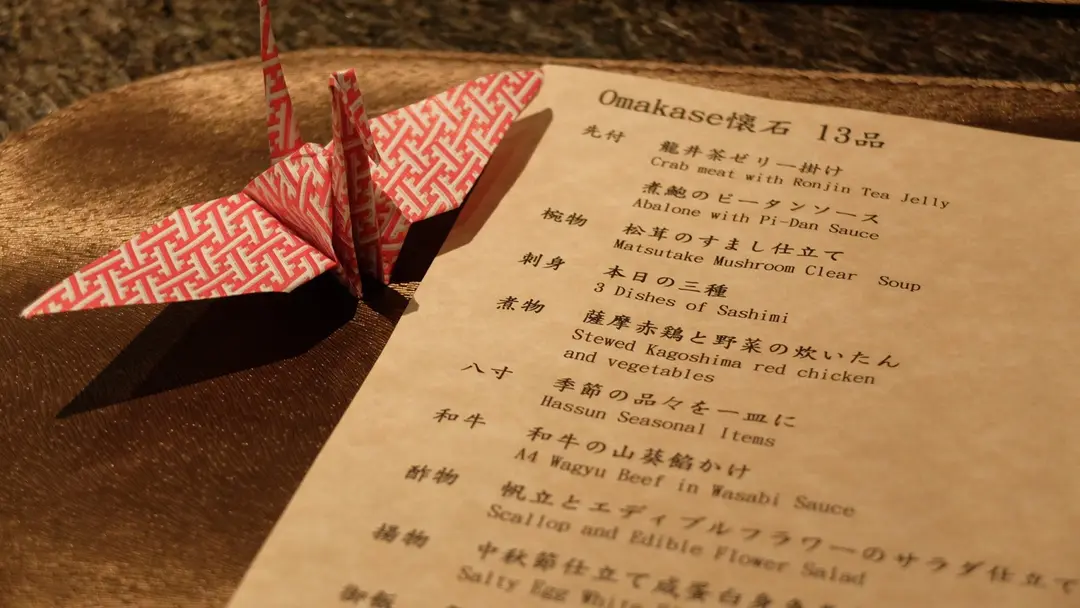 Omakase懐石 13品
先付 龍井茶ゼリー掛け
Crab meat with Ronjin Tea Jelly
煮鮑のピータンソース
Abalone with Pi-Dan Sauce
椀物 松茸のすまし仕立て
Matsutake Mushroom Clear Soup
刺身 本日の三種
3 Dishes of Sashimi
煮物 薩摩赤鶏と野菜の炊いたん
Stewed Kagoshima red chicken
and vegetables
八寸 季節の品々を一皿に
Hassun Seasonal Items
和牛 和牛の山葵餡かけ
A4 Wagyu Beef in Wasabi Sauce
酢物 帆立とエディブルフラワーのサラダ仕立て
Scallop and Edible Flower Salad
揚物 中秋節仕立て咸蛋白身魚
Salty Egg White
御飯